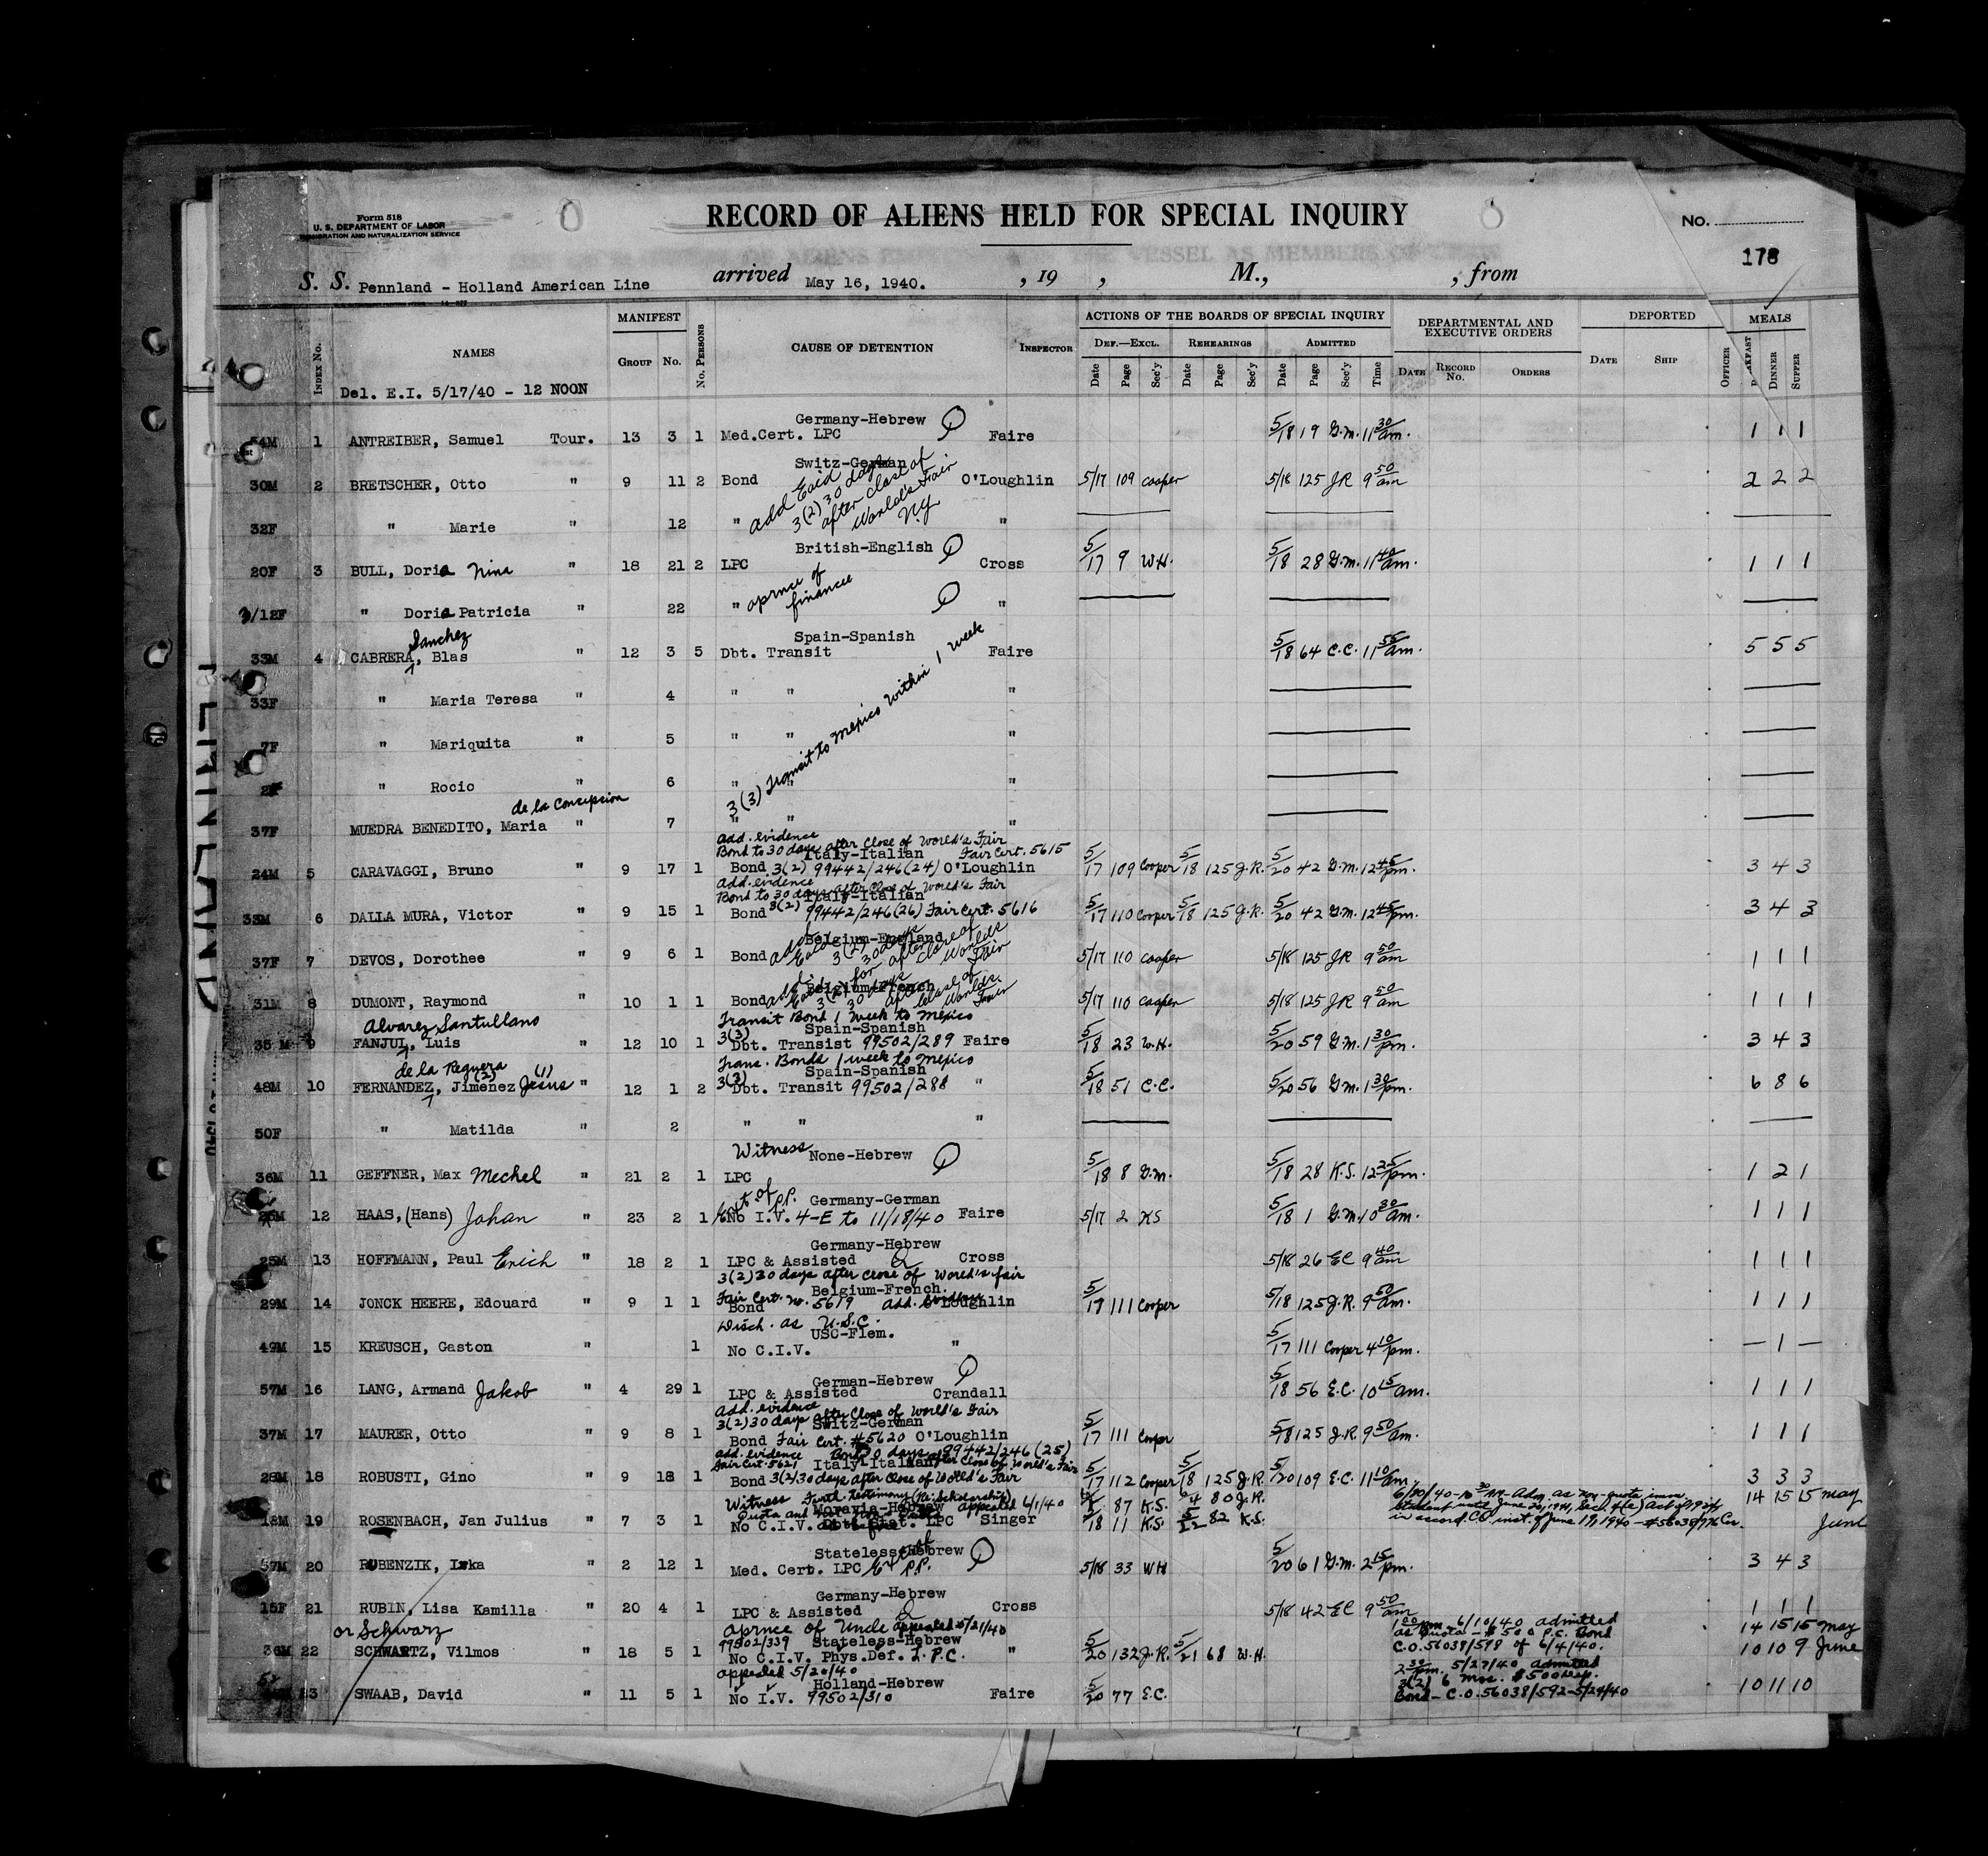 Form 518
U. S. DEPARTMENT OF LABOR
IMMIGRATION AND NATURALIZATION SERVICE
RECORD OF ALIENS HELD FOR SPECIAL INQUIRY
No.
178
S. S. Pennland - Holland American Line arrived May 16, 1940. , 19 , M., , from
INDEX No. NAMES MANIFEST GROUP No. No. PERSONS CAUSE OF DETENTION INSPECTOR ACTIONS OF THE BOARDS OF SPECIAL INQUIRY DEPARTMENTAL AND EXECUTIVE ORDERS DEPORTED MEALS
DEF.—EXCL. REHEARINGS ADMITTED
Date Page Sec'y Date Page Sec'y Date Page Sec'y Time DATE RECORD No. ORDERS DATE SHIP OFFICER DINNER SUPPER
Del. E.I. 5/17/40 - 12 NOON
Germany-Hebrew
54M 1 ANTREIBER, Samuel Tour. 13 3 1 Med.Cert. LPC Faire 5/18 19 G.M. 11 30 am. 1 1 1
Switz-German
30M 2 BRETSCHER, Otto " 9 11 2 Bond O'Loughlin 5/17 109 Cooper 5/18 125 JR 9 50 am 2 2 2
add Evid 3(2) 30 days after close of World's Fair N.Y.
32F " Marie " 12 " "
British-English
20F 3 BULL, Doris Nina " 18 21 2 LPC Cross 5/17 9 W.H. 5/18 28 G.M. 11 40 am. 1 1 1
/12F " Doris Patricia " 22 " "
Spain-Spanish
Sanchez
33M 4 CABRERA, Blas " 12 3 5 Dbt. Transit Faire 5/18 64 C.C. 11 55 am. 5 5 5
33F " Maria Teresa " 4 " " "
7F " Mariquita " 5 " " "
2F " Rocio " 6 " " "
3(3) Transit to Mexico within 1 week
de la Concepcion
37F MUEDRA BENEDITO, Maria " 7 " " "
Add. evidence
Bond to 30 days after close of World's Fair
Italy-Italian Fair Cert. 5615
24M 5 CARAVAGGI, Bruno " 9 17 1 Bond 3(2) 99442/246(24) O'Loughlin 5/17 109 Cooper 5/18 125 J.R. 5/20 42 G.M. 12 45 pm. 3 4 3
Add. evidence
Bond to 30 days after close of World's Fair
Italy-Italian
33M 6 DALLA MURA, Victor " 9 15 1 Bond 3(2) 99442/246(26) Fair Cert. 5616 5/17 110 Cooper 5/18 125 J.R. 5/20 42 G.M. 12 45 pm. 3 4 3
Belgium-England
37F 7 DEVOS, Dorothee " 9 6 1 Bond 5/17 110 Cooper 5/18 125 JR 9 50 am 1 1 1
Belgium-French
31M 8 DUMONT, Raymond " 10 1 1 Bond 5/17 110 Cooper 5/18 125 JR 9 50 am 1 1 1
Transit Bond 1 week to Mexico
Alvarez Santullano Spain-Spanish
35 M 9 FANJUL, Luis " 12 10 1 3(3) Dbt. Transist 99502/289 Faire 5/18 23 W.H. 5/20 59 G.M. 1 30 pm. 3 4 3
Trans. Bonds 1 week to Mexico
de la Reguera Spain-Spanish
48M 10 FERNANDEZ, Jimenez (2) Jesus (1) " 12 1 2 3(3) Dbt. Transit 99502/288 " 5/18 51 C.C. 5/20 56 G.M. 1 30 pm. 6 8 6
50F " Matilda " 2 " " "
Witness None-Hebrew
36M 11 GEFFNER, Max Mechel " 21 2 1 LPC 5/18 8 G.M. 5/18 28 K.S. 12 25 pm. 1 2 1
Germany-German
26M 12 HAAS, (Hans) Johan " 23 2 1 No I.V. 4-E to 11/18/40 Faire 5/17 2 KS 5/18 1 G.M. 10 30 am. 1 1 1
Germany-Hebrew
25M 13 HOFFMANN, Paul Erich " 18 2 1 LPC & Assisted Cross 5/18 26 EC 9 40 am 1 1 1
3(2) 30 days after close of World's fair
Belgium-French.
29M 14 JONCK HEERE, Edouard " 9 1 1 Fair Cert. No. 5619 Bond O'Loughlin 5/17 111 Cooper 5/18 125 J.R. 9 50 am. 1 1 1
Disch. as U.S.C.
USC-Flem.
49M 15 KREUSCH, Gaston " 1 No C.I.V. " 5/17 111 Cooper 4 10 pm. — 1 —
German-Hebrew
57M 16 LANG, Armand Jakob " 4 29 1 LPC & Assisted Crandall 5/18 56 E.C. 10 15 am. 1 1 1
Add. evidence
3(2) 30 days after close of World's Fair
Switz-German
37M 17 MAURER, Otto " 9 8 1 Bond Fair Cert. #5620 O'Loughlin 5/17 111 Cooper 5/18 125 J.R. 9 50 am. 1 1 1
add. evidence Bond 30 days 99442/246(25)
Fair Cert. 5621 Italy-Italian after Close of World's Fair
28M 18 ROBUSTI, Gino " 9 18 1 Bond 3(2) 30 days after close of World's Fair 5/17 112 Cooper 5/18 125 J.R. 5/20 109 E.C. 11 10 am. 3 3 3
Witness Furth. testimony (Re: Scholarship) appealed 6/1/40 87 K.S. 80 J.R. 14 15 15 May
Moravia-Hebrew
18M 19 ROSENBACH, Jan Julius " 7 3 1 No C.I.V. LPC Singer 5/18 11 K.S. 5/22 82 K.S. June
in accord. C.O. inst. of June 19, 1940 - #56038/776
Stateless-Hebrew
57M 20 RUBENZIK, " 2 12 1 Med. Cert. LPC 5/18 33 WH 5/20 61 G.M. 2 15 pm. 3 4 3
Germany-Hebrew
15F 21 RUBIN, Lisa Kamilla " 20 4 1 LPC & Assisted Cross 5/18 42 EC 9 50 am 1 1 1
aprnce of Uncle appealed 5/21/40 6/10/40 admitted 14 15 15 May
or Schwarz 99502/339 Stateless-Hebrew as Quota - $500 P.C. Bond
36M 22 SCHWARTZ, Vilmos " 18 5 1 No C.I.V. Phys.Def. L.P.C. " 5/20 132 J.R. 5/21 68 W.H. C.O. 56038/598 of 6/4/40. 10 10 9 June
appealed 5/20/40 2 30 pm. 5/27/40 admitted
Holland-Hebrew 3(2) 6 mos. $500 dep.
23 SWAAB, David " 11 5 1 No I.V. 99502/310 Faire 5/20 77 E.C. Bond - C.O. 56038/592-5/24/40 10 11 10